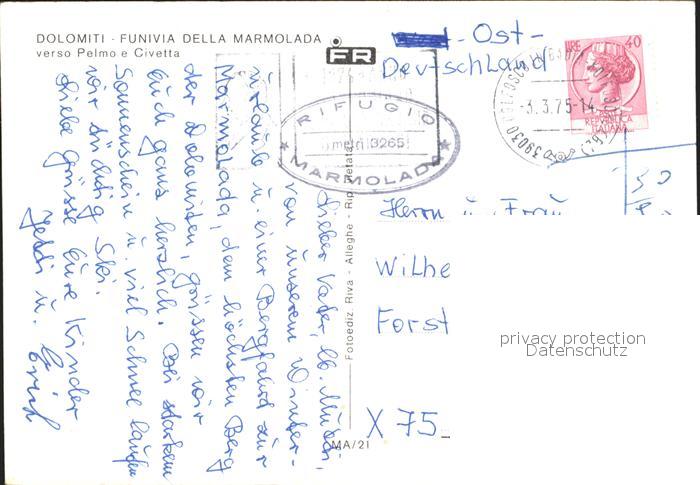 DOLOMITI - FUNIVIA DELLA MARMOLADA
verso Pelmo e Civetta
FR
RIFUGIO
metri 3265
MARMOLADA
Lieber Vater, lb. Mutti,
von unserem Winter-
urlaub u. einer Bergfahrt zur
Marmolada, dem höchsten Berg
der Dolomiten, grüssen wir
Euch ganz herzlich. Bei starkem
Sonnenschein u. viel Schnee laufen
wir tüchtig Ski.
Liebe Grüsse Eure Kinder
u. Erich
Fotoediz. Riva - Alleghe - Rip. Vietata
MA/21
-Ost-
Deutschland
LIRE 40
REPVBBLICA
ITALIANA
39030
-3.3.75-14
Herrn u. Frau
Wilhe
Forst
X 75
privacy protection
Datenschutz